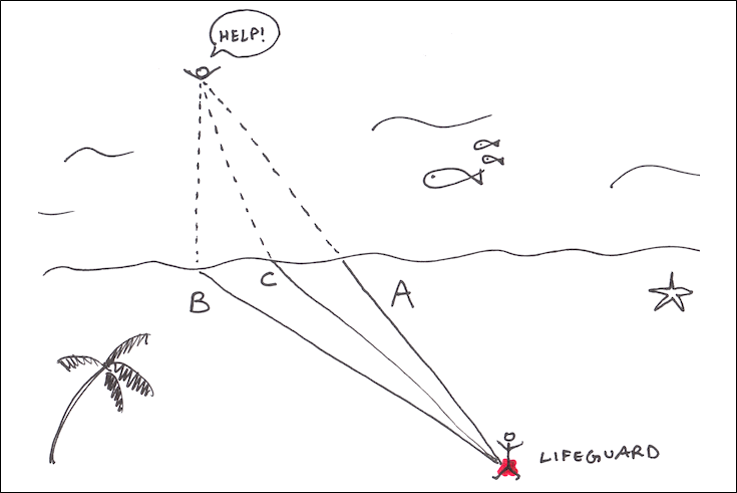 HELP!
B
C
A
LIFEGUARD